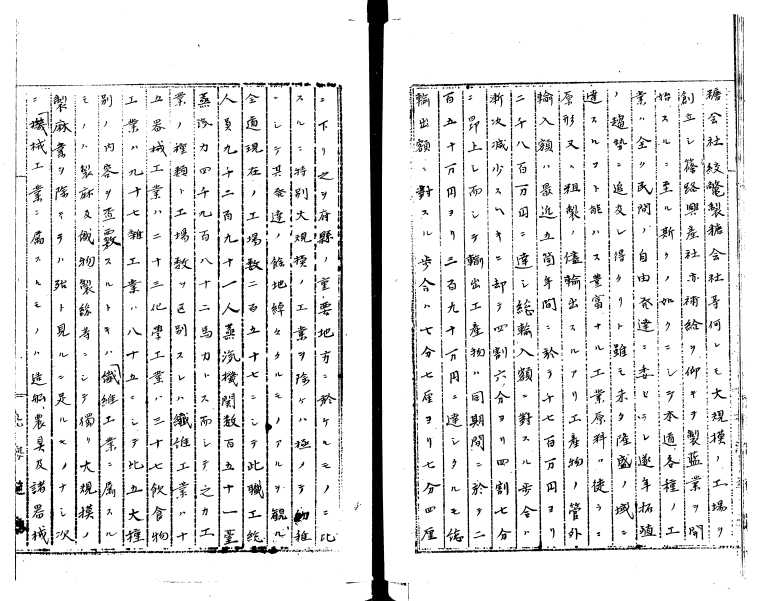 糖会社紋鼈製糖会社等何レモ大規模ノ工場ヲ
創立シ篠路興産社亦補給ヲ仰キテ製藍業ヲ開
始スルニ至ル斯クノ如クニシテ本道各種ノ工
業ハ全ク民間ノ自由発達ニ委セラレ逐年拓殖
ノ趨勢ニ追及シ得タリト雖モ未タ隆盛ノ域ニ
達スルコト能ハス豊富ナル工業原料ハ徒ラニ
原形又ハ粗製ノ儘輸出スルアリ工産物ノ管外
輸入額ハ最近五箇年間ニ於テ千七百万円ヨリ
二千八百万円ニ達シ総輸入額ニ対スル歩合ハ
漸次減少スヘキニ却テ四割六分ヨリ四割七分
ニ昂上シ而シテ輸出工産物ハ同期間ニ於テ二
百五十万円ヨリ二百九十万円ニ達シタルモ其
輸出額ニ対スル歩合ハ七分七厘ヨリ七分四厘
ニ下リ之ヲ府県ノ重要地方ニ於ケルモノニ比
スルニ特別大規模ノ工業ヲ除ケハ極メテ幼稚
ニシテ其発達ノ餘地綽々タルモノアルヲ観ル
全道現在ノ工場数二百五十七ニシテ此職工総
人員九千二百九十一人蒸汽機関数百五十一臺
蒸汽力四千九百八十二馬力トス而シテ之カ工
業ノ種類ト工場数ヲ区別スレハ纎維工業ハ十
五器械工業ハ二十三化学工業ハ三十七飲食物
工業ハ九十七雑工業ハ八十五ニシテ此五大種
別ノ内容ヲ査覈スルトキハ纎維工業ニ属スル
モノハ製麻及織物製綿等ニシテ獨リ大規模ノ
製麻業ヲ除クテハ殆ト見ルニ足ルモノナシ次
ニ機械工業ニ属スルモノハ造船、農具及諸器械